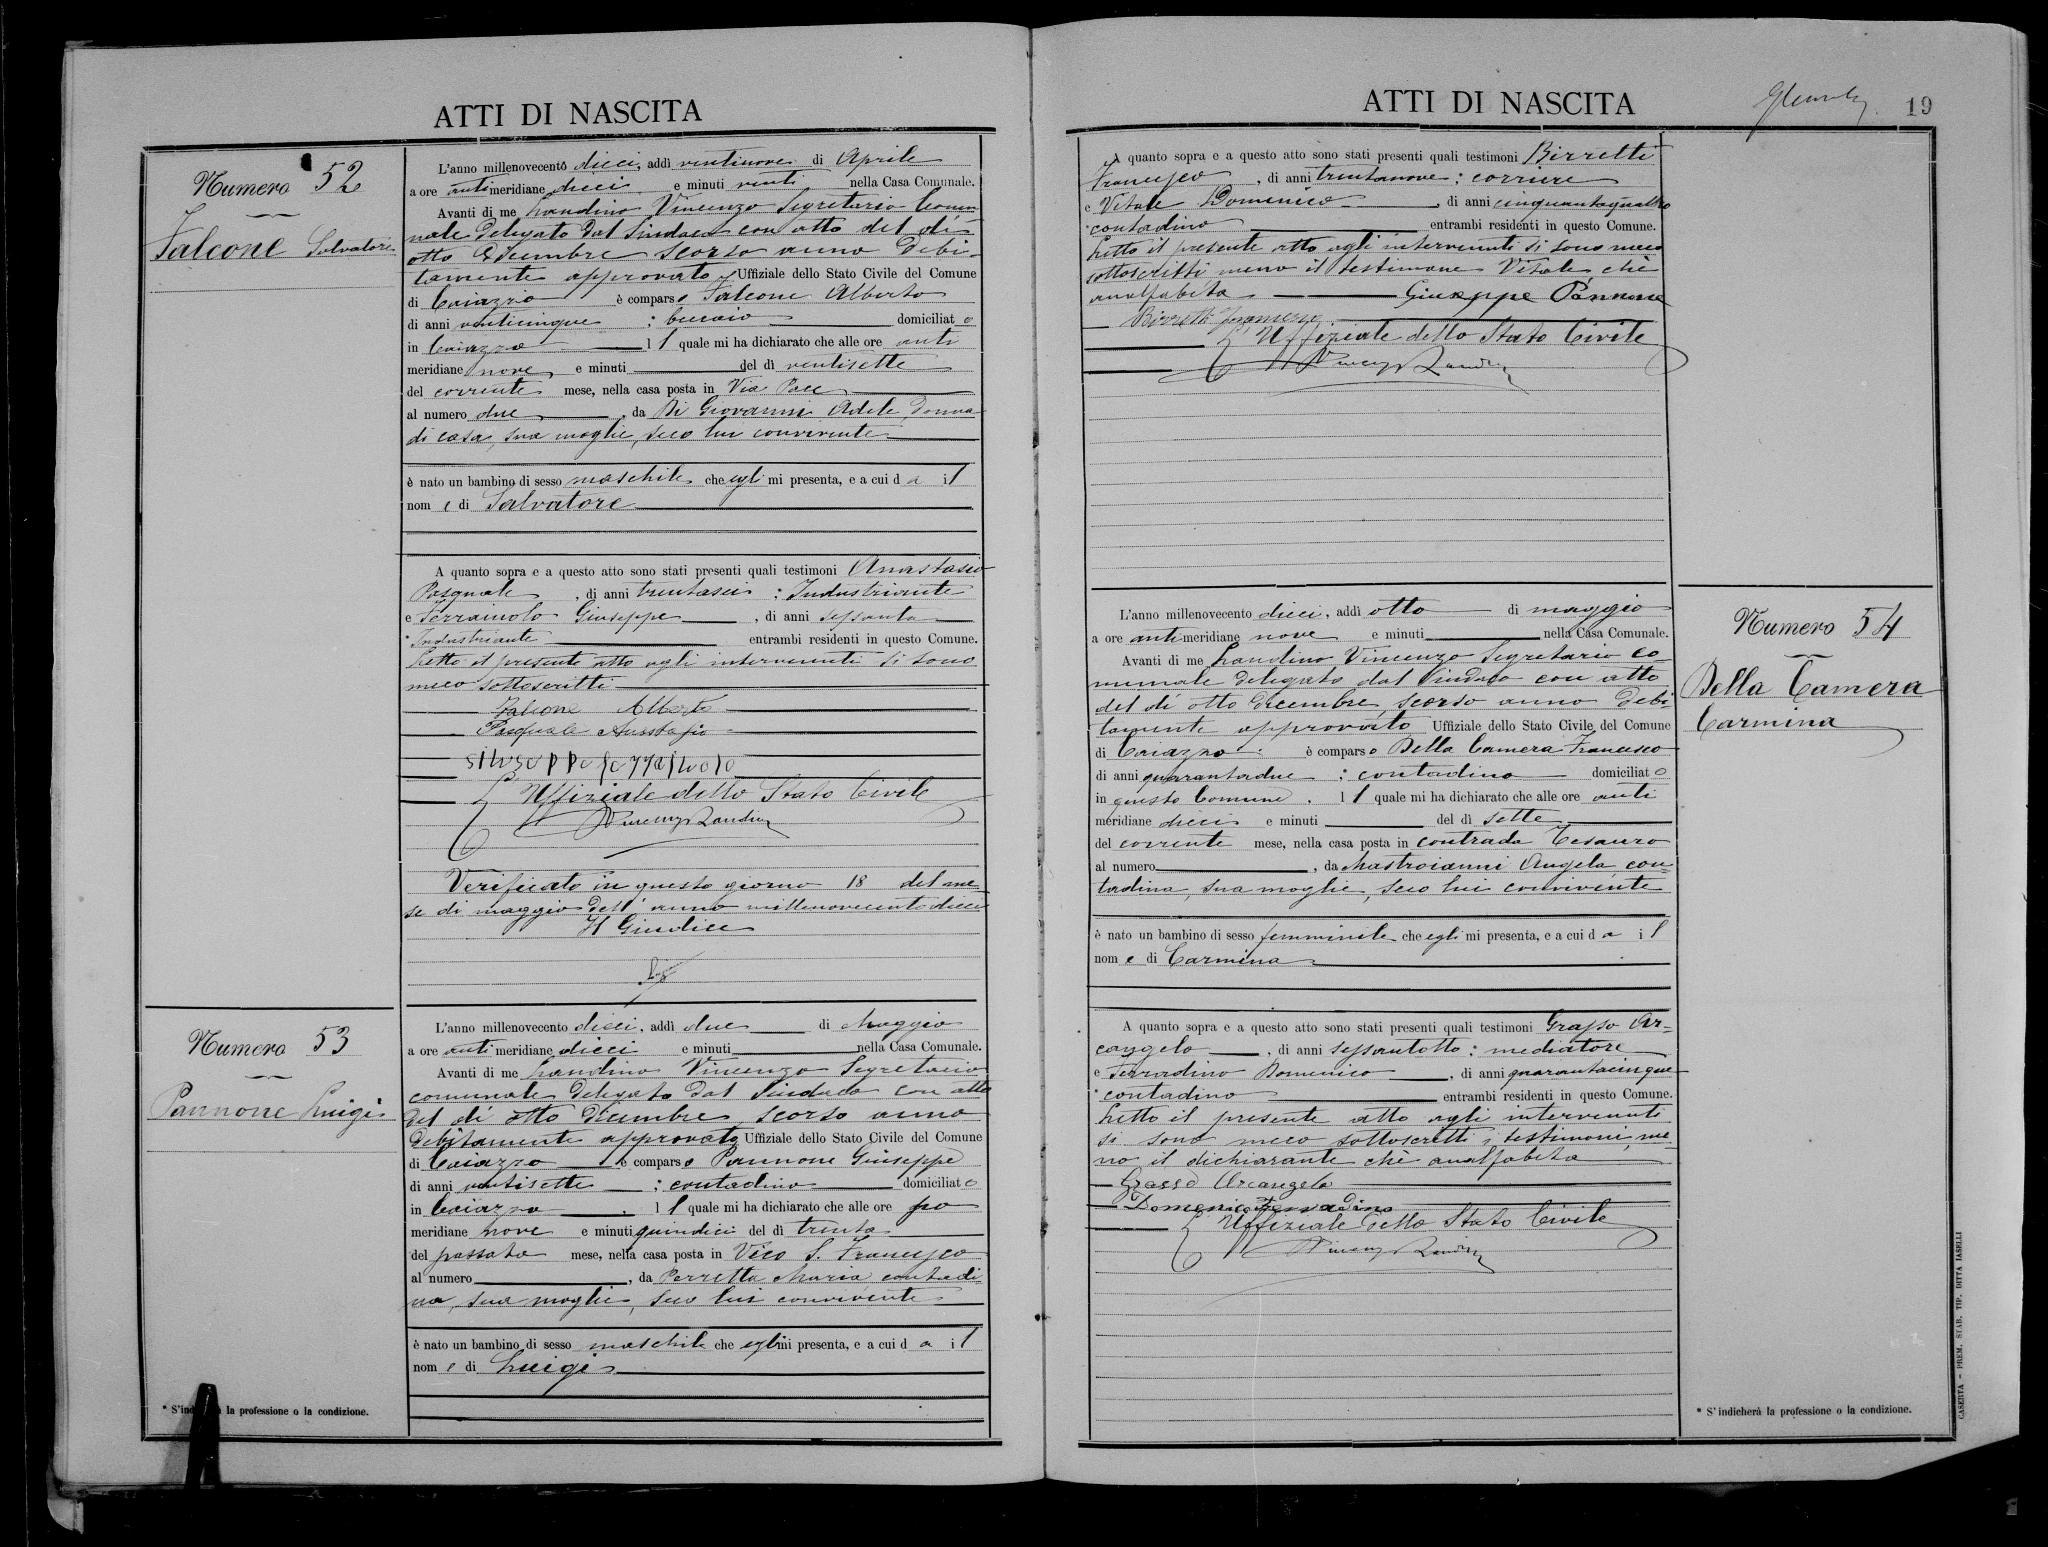 ATTI DI NASCITA
Numero 52
Falcone Salvatore
L'anno millenovecento dieci, addì ventinove di Aprile
a ore anti meridiane dieci e minuti venti nella Casa Comunale.
Avanti di me Landino Vincenzo Segretario Comu-
nale delegato dal Sindaco con atto del dì
otto Decembre scorso anno debi-
tamente approvato Uffiziale dello Stato Civile del Comune
di Caiazzo è comparso Falcone Alberto
di anni venticinque ; domiciliato
in Caiazzo il quale mi ha dichiarato che alle ore anti
meridiane nove e minuti del dì ventisette
del corrente mese, nella casa posta in Via Pace
al numero due, da Di Giovanni Adele, donna
di casa, sua moglie, seco lui convivente
è nato un bambino di sesso maschile che egli mi presenta, e a cui dà il
nome di Salvatore
A quanto sopra e a questo atto sono stati presenti quali testimoni Anastasio
Pasquale, di anni trentasei ; Industriante
e Ferraiuolo Giuseppe, di anni sessanta
* Industriante entrambi residenti in questo Comune.
Letto il presente atto agli intervenuti si sono
meco sottoscritti
Falcone Alberto
Pasquale Anastasio
Giuseppe Ferraiuolo
L'Uffiziale dello Stato Civile
Vincenzo Landino
Verificato in questo giorno 18 del me-
se di maggio dell'anno millenovecentodieci
Il Giudice
Numero 53
Pannone Luigi
L'anno millenovecento dieci, addì due di Maggio
a ore anti meridiane dieci e minuti nella Casa Comunale.
Avanti di me Landino Vincenzo Segretario
comunale delegato dal Sindaco con atto
del dì otto Decembre scorso anno
debitamente approvato Uffiziale dello Stato Civile del Comune
di Caiazzo è comparso Pannone Giuseppe
di anni ventisette ; contadino domiciliato
in Caiazzo il quale mi ha dichiarato che alle ore po
meridiane nove e minuti quindici del dì trenta
del passato mese, nella casa posta in Vico S. Francesco
al numero, da Perretta Maria contadi-
na, sua moglie, seco lui convivente
è nato un bambino di sesso maschile che egli mi presenta, e a cui dà il
nome di Luigi
* S'indicherà la professione o la condizione.
ATTI DI NASCITA
19
A quanto sopra e a questo atto sono stati presenti quali testimoni Birretti
Francesco, di anni trentanove ; corriere
e Vitale Domenico, di anni cinquantaquattro
* contadino entrambi residenti in questo Comune.
Letto il presente atto agli intervenuti si sono meco
sottoscritti meno il testimone Vitale, chè
analfabeta Giuseppe Pannone
Birretti Francesco
L'Uffiziale dello Stato Civile
Vincenzo Landino
Numero 54
Della Camera
Carmina
L'anno millenovecento dieci, addì otto di maggio
a ore anti meridiane nove e minuti nella Casa Comunale.
Avanti di me Landino Vincenzo Segretario co-
munale delegato dal Sindaco con atto
del dì otto decembre, scorso anno debi-
tamente approvato Uffiziale dello Stato Civile del Comune
di Caiazzo è comparso Della Camera Francesco
di anni quarantadue ; contadino domiciliato
in questo Comune. il quale mi ha dichiarato che alle ore anti
meridiane dieci e minuti del dì sette
del corrente mese, nella casa posta in contrada Cesauro
al numero, da Mastroianni Angela, con-
tadina, sua moglie, seco lui convivente
è nato un bambino di sesso femminile che egli mi presenta, e a cui dà il
nome di Carmina
A quanto sopra e a questo atto sono stati presenti quali testimoni Grasso Ar-
cangelo, di anni sessantotto ; mediatore
e Ferradino Domenico, di anni quarantacinque
* contadino entrambi residenti in questo Comune.
Letto il presente atto agli intervenuti
si sono meco sottoscritti i testimoni, me-
no il dichiarante chè analfabeta
Grasso Arcangelo
Domenico Ferradino
L'Uffiziale dello Stato Civile
Vincenzo Landino
* S'indicherà la professione o la condizione.
CASERTA - PREM. STAB. TIP. DITTA IASELLI